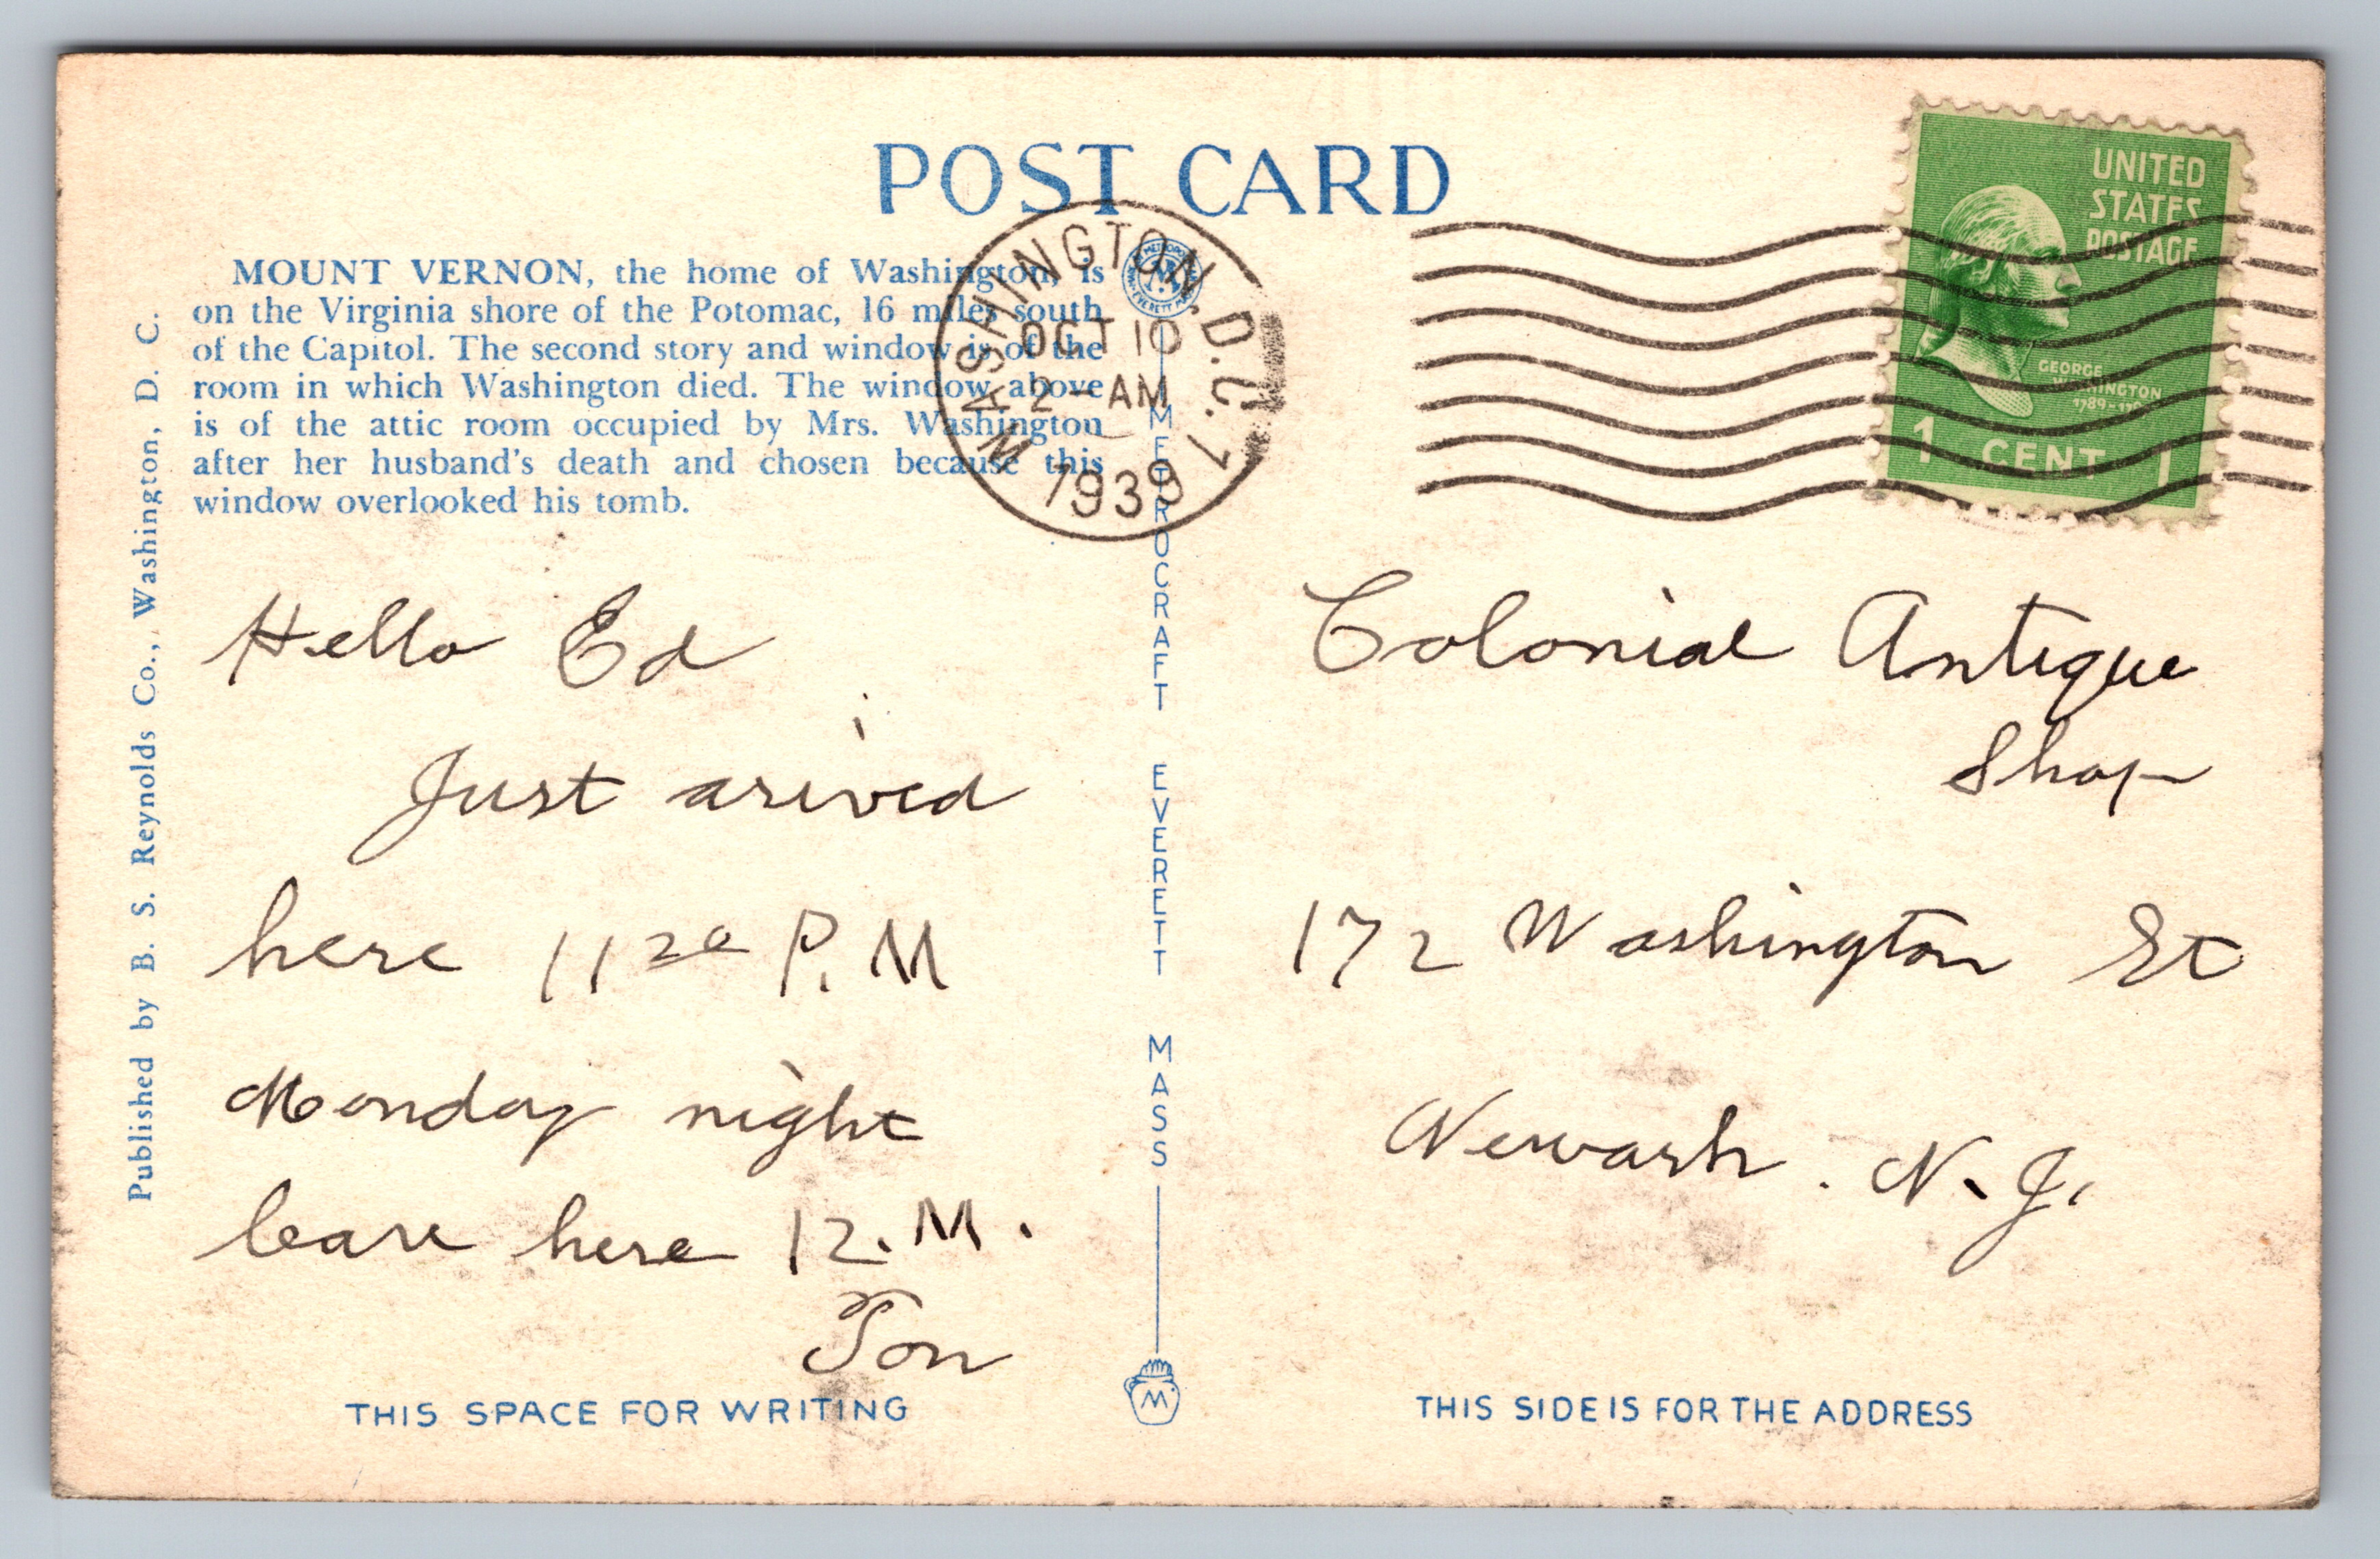 POST CARD
MOUNT VERNON, the home of Washington, is
on the Virginia shore of the Potomac, 16 miles south
of the Capitol. The second story and window is of the
room in which Washington died. The window above
is of the attic room occupied by Mrs. Washington
after her husband's death and chosen because this
window overlooked his tomb.
Published by B. S. Reynolds Co., Washington, D. C.
WASHINGTON, D.C. 1
OCT 10
2 - AM
1939
UNITED
STATES
POSTAGE
GEORGE
WASHINGTON
1 CENT 1
METROCRAFT EVERETT MASS
M
Hello Ed
Just arived
here 11 20 P.M
Monday night
leave here 12. M.
Ton
Colonial Antique
Shop
172 Washington St
Newark. N. J.
THIS SPACE FOR WRITING
THIS SIDE IS FOR THE ADDRESS